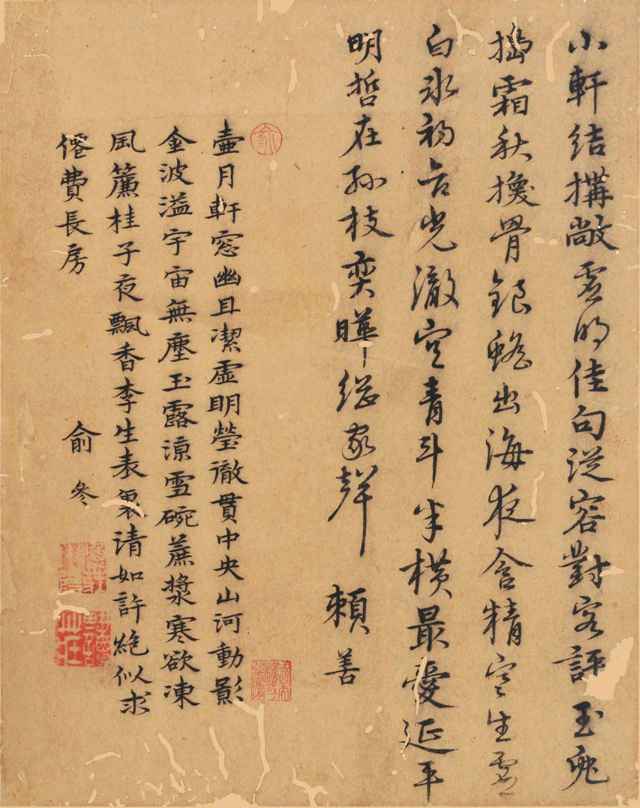 小軒結搆敞虛明佳句從容對客評玉兔
搗霜秋換骨銀蟾出海夜含精室生虛
白氷初合光澈空青斗半橫最愛延平
明哲在孫枝奕曄繼家聲
賴善
壺月軒窓幽且潔虛明瑩徹貫中央山河動影
金波溢宇宙無塵玉露涼雪碗蔗漿寒欲凍
風簾桂子夜飄香李生表裏清如許絕似求
僊費長房
俞参